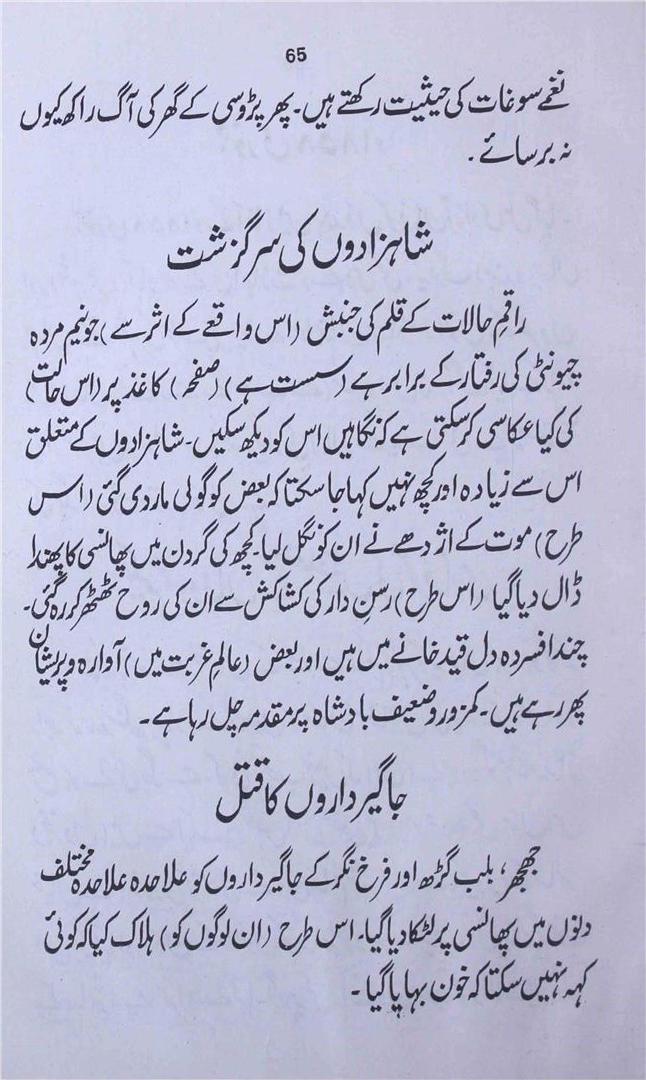 65
نغمے سوغات کی حیثیت رکھتے ہیں۔ پھر پڑوسی کے گھر کی آگ راکھ کیوں
نہ برسائے۔
شاہزادوں کی سرگزشت
راقمِ حالات کے قلم کی جنبش (اس واقعے کے اثر سے) جو نیم مردہ
چیونٹی کی رفتار کے برابر ہے (سست ہے) (صفحہ) کاغذ پر (اس حالت)
کی کیا عکاسی کر سکتی ہے کہ نگاہیں اس کو دیکھ سکیں۔ شاہزادوں کے متعلق
اس سے زیادہ اور کچھ نہیں کہا جا سکتا کہ بعض کو گولی مار دی گئی (اس
طرح) موت کے اژدھے نے ان کو نگل لیا۔ کچھ کی گردن میں پھانسی کا پھندا
ڈال دیا گیا (اس طرح) رسن دار کی کشاکش سے ان کی روح ٹھٹھر کر رہ گئی۔
چند افسردہ دل قید خانے میں ہیں اور بعض (عالمِ غربت میں) آوارہ و پریشان
پھر رہے ہیں۔ کمزور و ضعیف بادشاہ پر مقدمہ چل رہا ہے۔
جاگیرداروں کا قتل
جھجھر، بلب گڑھ اور فرخ نگر کے جاگیرداروں کو علاحدہ علاحدہ مختلف
دنوں میں پھانسی پر لٹکا دیا گیا۔ اس طرح (ان لوگوں کو) ہلاک کیا کہ کوئی
کہہ نہیں سکتا کہ خون بہا پا گیا۔